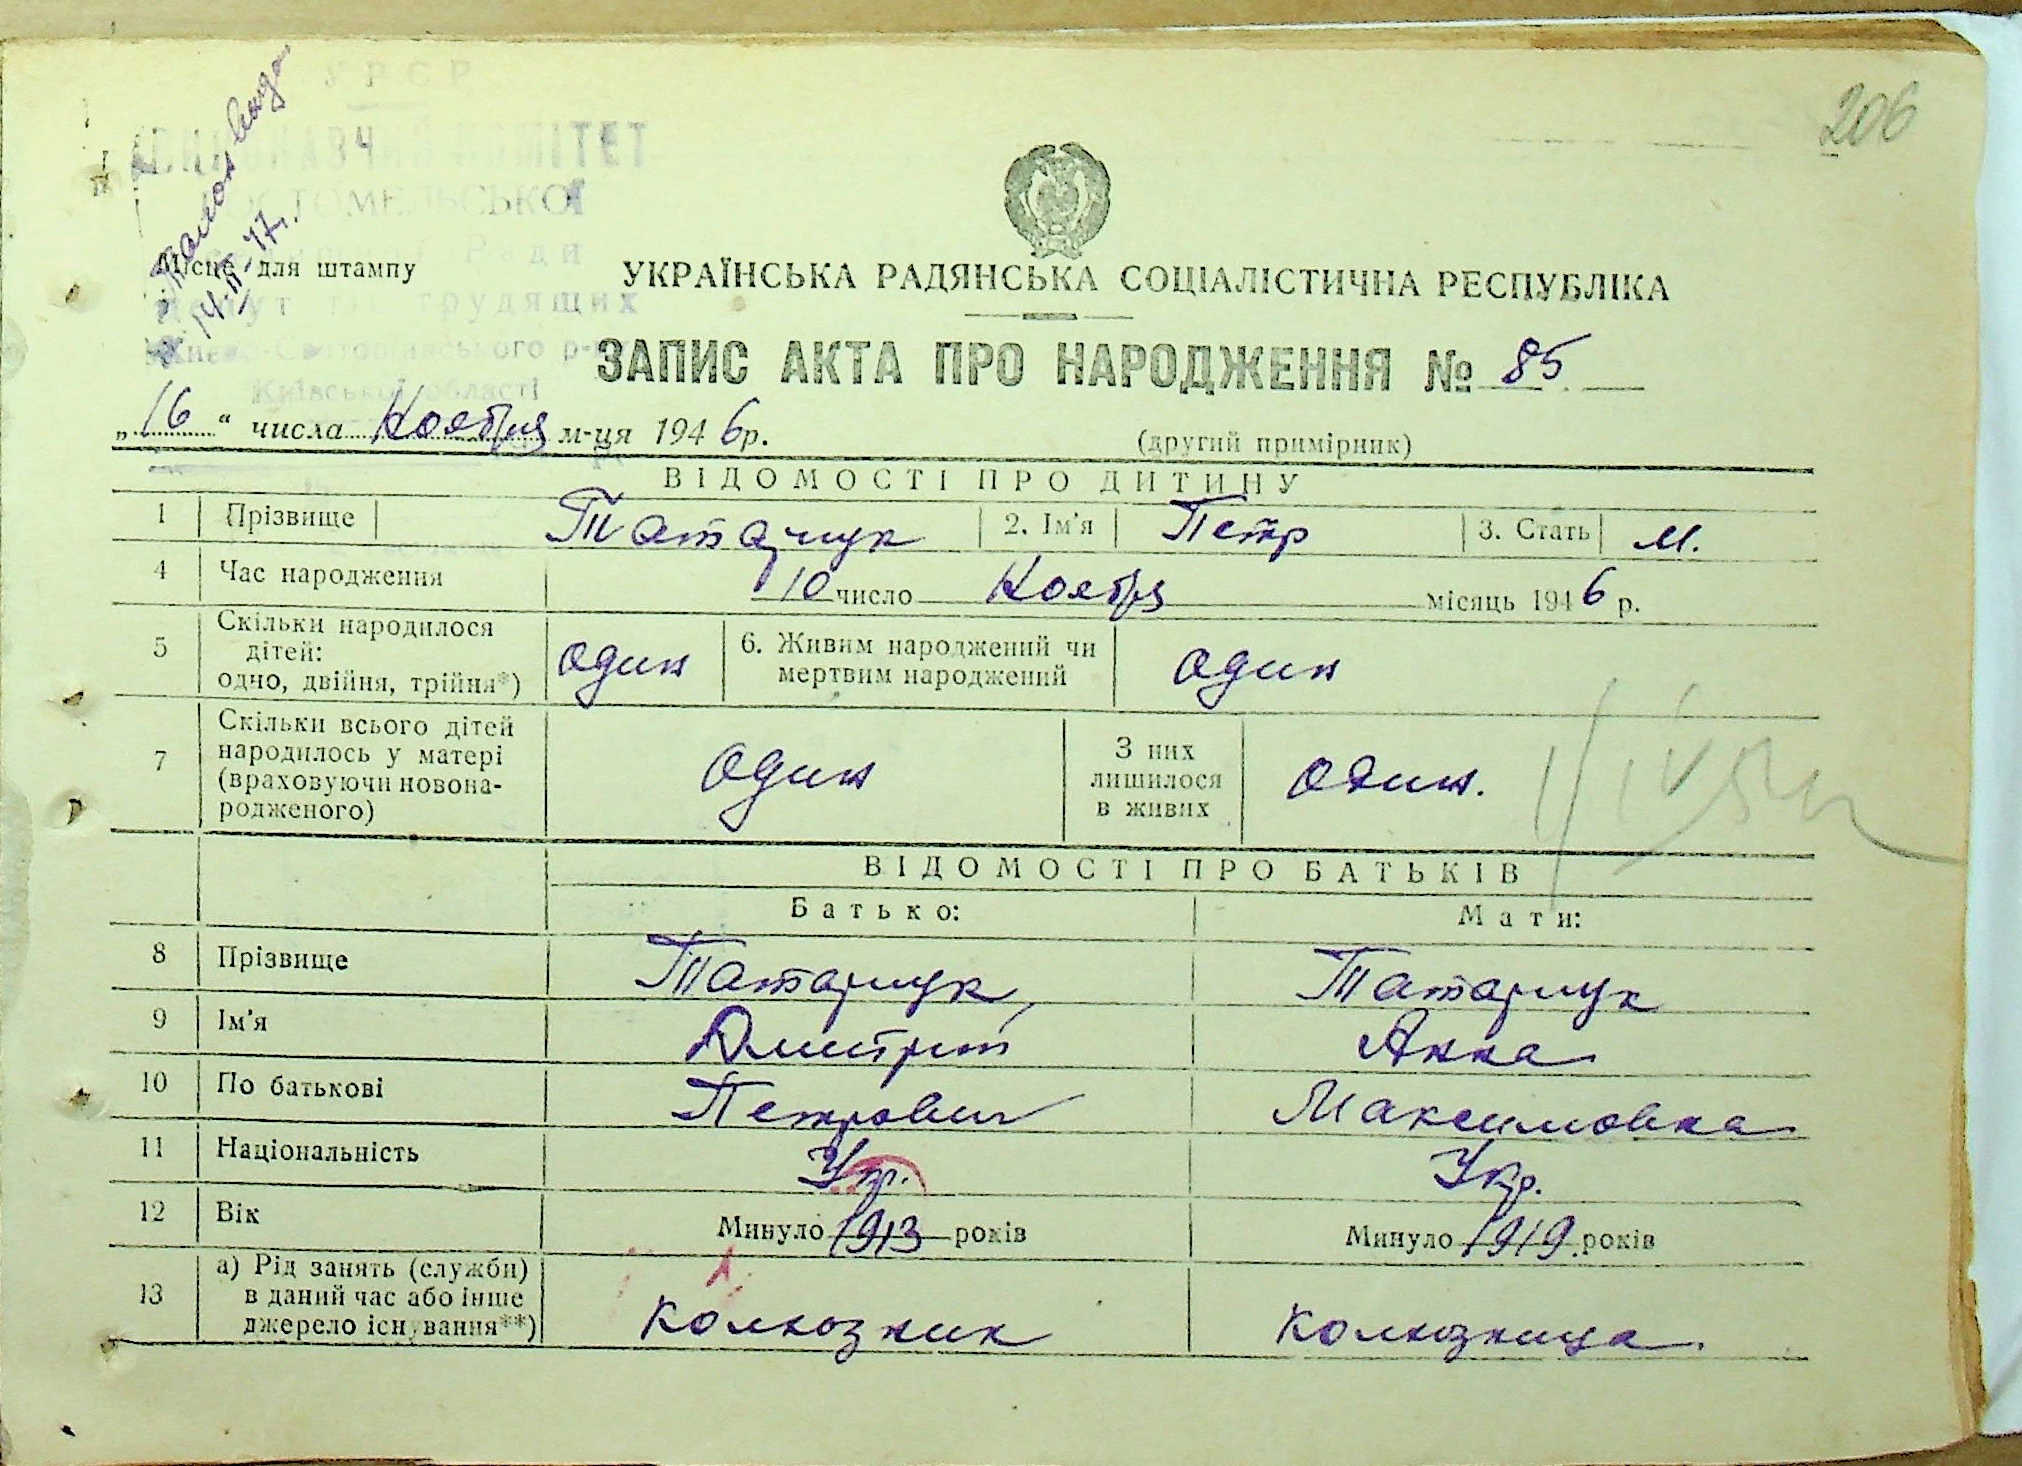 206
УРСР
ВИКОНАВЧИЙ КОМІТЕТ
ГОСТОМЕЛЬСЬКОЇ
Ради
депут трудящих
Києво-Святошинського р-ну
Київської області
Талон выдан
Місце для штампу
УКРАЇНСЬКА РАДЯНСЬКА СОЦІАЛІСТИЧНА РЕСПУБЛІКА
ЗАПИС АКТА ПРО НАРОДЖЕННЯ № 85
„16“ числа Ноября м-ця 1946р.
(другий примірник)
ВІДОМОСТІ ПРО ДИТИНУ
1 Прізвище Татарчук 2. Ім'я Петр 3. Стать м.
4 Час народження 10 число Ноября місяць 1946 р.
5 Скільки народилося дітей: одно, двійня, трійня*) один 6. Живим народжений чи мертвим народжений один
7 Скільки всього дітей народилось у матері (враховуючи новонародженого) один З них лишилося в живих один.
ВІДОМОСТІ ПРО БАТЬКІВ
Батько: Мати:
8 Прізвище Татарчук Татарчук
9 Ім'я Дмитрий Анна
10 По батькові Петрович Максимовна
11 Національність Укр. Укр.
12 Вік Минуло 1913 років Минуло 1919 років
13 а) Рід занять (служби) в даний час або інше джерело існування**) колхозник колхозница.